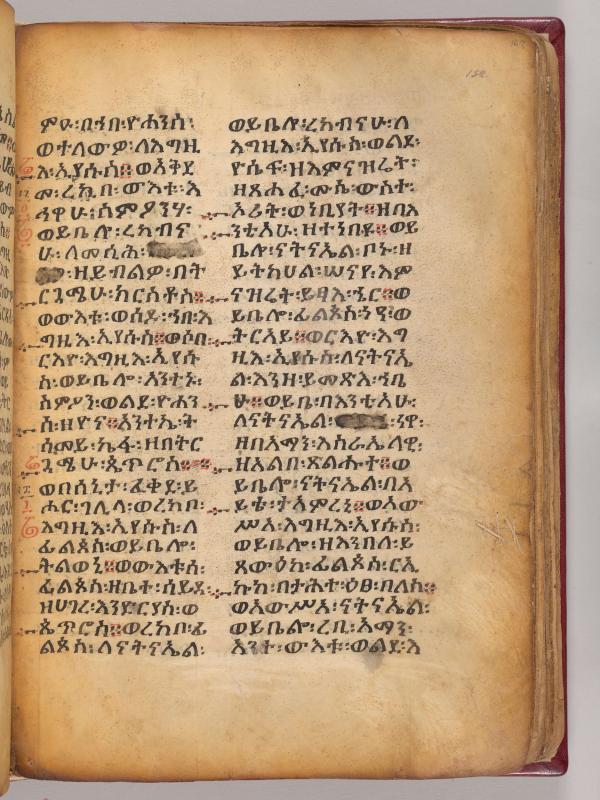 ምዑ፡በኀበ፡ዮሐንስ፡
ወተለውዎ፡ለእግዚ
እ፡ኢየሱስ፨ወእቅደ
መ፡ረኪቦ፡ውእቱ፡እ
ኁዋሁ፡ስምዖንሃ፡
ወይቤሎ፡ረከብና
ሁ፡ለመሲሕ፡
፡ዘይብልዎ፡በት
ርጓሜሁ፡ክርስቶስ፨
ወውእቱ፡ወሰዶ፡ኀበ፡እ
ግዚእ፡ኢየሱስ፨ወሶበ
ርእዮ፡እግዚእ፡ኢየሱ
ስ፡ወይቤሎ፡አንተኑ፡
ስምዖን፡ወልደ፡ዮሐን
ስ፡ዘዮና፡አንተኬ፡ት
ሰመይ፡ኬፋ፡ዘበትር
ጓሜሁ፡ጴጥሮስ፨
ወበሳኒታ፡ፈቀደ፡ይ
ሖር፡ገሊላ፡ወረከቦ፡
እግዚእ፡ኢየሱስ፡ለ
ፊልጶስ፡ወይቤሎ፡
ትልወኒ፨ወውእቱሰ፡
ፊልጶስ፡ዘቤተ፡ሳይዳ፡
ዘሀገረ፡እንድርያስ፡ወ
ጴጥሮስ፨ወረከቦ፡ፊ
ልጶስ፡ለናትናኤል፡
ወይቤሎ፡ረከብናሁ፡ለ
እግዚእ፡ኢየሱስ፡ወልደ፡
ዮሴፍ፡ዘእምናዝሬት፡
ዘጸሐፈ፡ሙሴ፡ውስተ፡
ኦሪት፡ወነቢያት፨ዘበእ
ንቲአሁ፡ዘተነበዩ፨ወይ
ቤሎ፡ናትናኤል፡ቦኑ፡ዘ
ይትከሀል፡ሠናየ፡እም
ናዝሬት፡ይፃእ፡ኄር፨ወ
ይቤሎ፡ፊልጶስ፡ነዓ፡ወ
ትርአይ፨ወርእዮ፡እግ
ዚእ፡ኢየሱስ፡ለናትናኤ
ል፡እንዘ፡ይመጽእ፡ኀቤ
ሁ፨ወይቤ፡በእንቲአሁ፡
ለናትናኤል፡ ፡ነዋ፡
ዘበአማን፡እስራኤላዊ፡
ዘአልቦ፡ጽልሑት፨ወ
ይቤሎ፡ናትናኤል፡በአ
ይቴ፡ተአምረኒ፨ወአው
ሥአ፡እግዚእ፡ኢየሱስ፡
ወይቤሎ፡ዘእንበለ፡ይ
ጸውዕከ፡ፊልጶስ፡ርኢ
ኩከ፡በታሕተ፡ዕፀ፡በለስ፨
ወአውሥአ፡ናትናኤል፡
ወይቤሎ፡ረቢ፡አማን፡
አንተ፡ውእቱ፡ወልደ፡እ